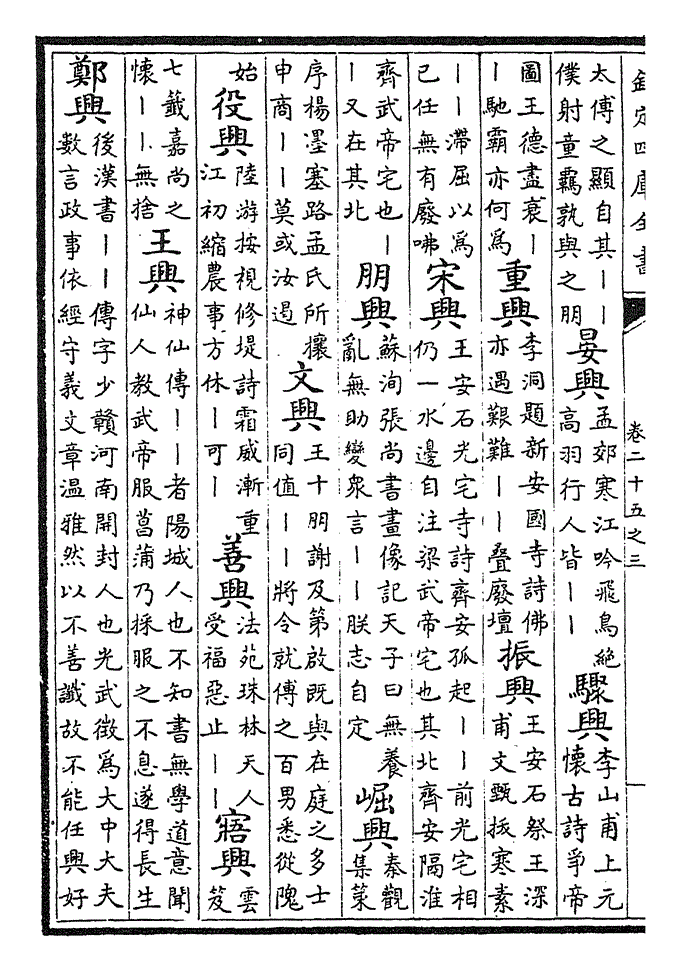 欽定四庫全書 卷二十五之三 一
太傅之顯自其丨丨僕射童羈孰與之朋 晏興 孟郊寒江吟飛鳥絕高羽行人皆丨丨 驟興 李山甫上元懷古詩爭帝
圖王德盡衰丨丨馳霸亦何為 重興 李洞題新安國寺詩佛亦遇艱難丨丨疊廢壇 振興 王安石祭王深甫文甄拔寒素
丨丨滯屈以為已任無有廢咈 宋興 王安石光宅寺詩齊安孤起丨丨前光宅相仍一水邊自注梁武帝宅也其北齊安隔淮
齊武帝宅也丨丨又在其北 朋興 蘇洵張尚書畫像記天子曰無養亂無助變衆言丨丨朕志自定 崛興 秦觀集策
序楊墨塞路孟氏所攘申商丨丨莫或汝遏 文興 王十朋謝及第啟既與在庭之多士同值丨丨將令就傅之百男悉從隗
始 役興 陸游按視修堤詩霜威漸重江初縮農事方休丨可丨 善興 法苑珠林天人受福惡止丨丨 寤興 雲笈
七籤嘉尚之懷丨丨無捨 王興 神仙傳丨丨者陽城人也不知書無學道意聞仙人教武帝服菖蒲乃採服之不息遂得長生
鄭興 後漢書丨丨傳字少贛河南開封人也光武徵為大中大夫數言政事依經守義文章温雅然以不善讖故不能任興好